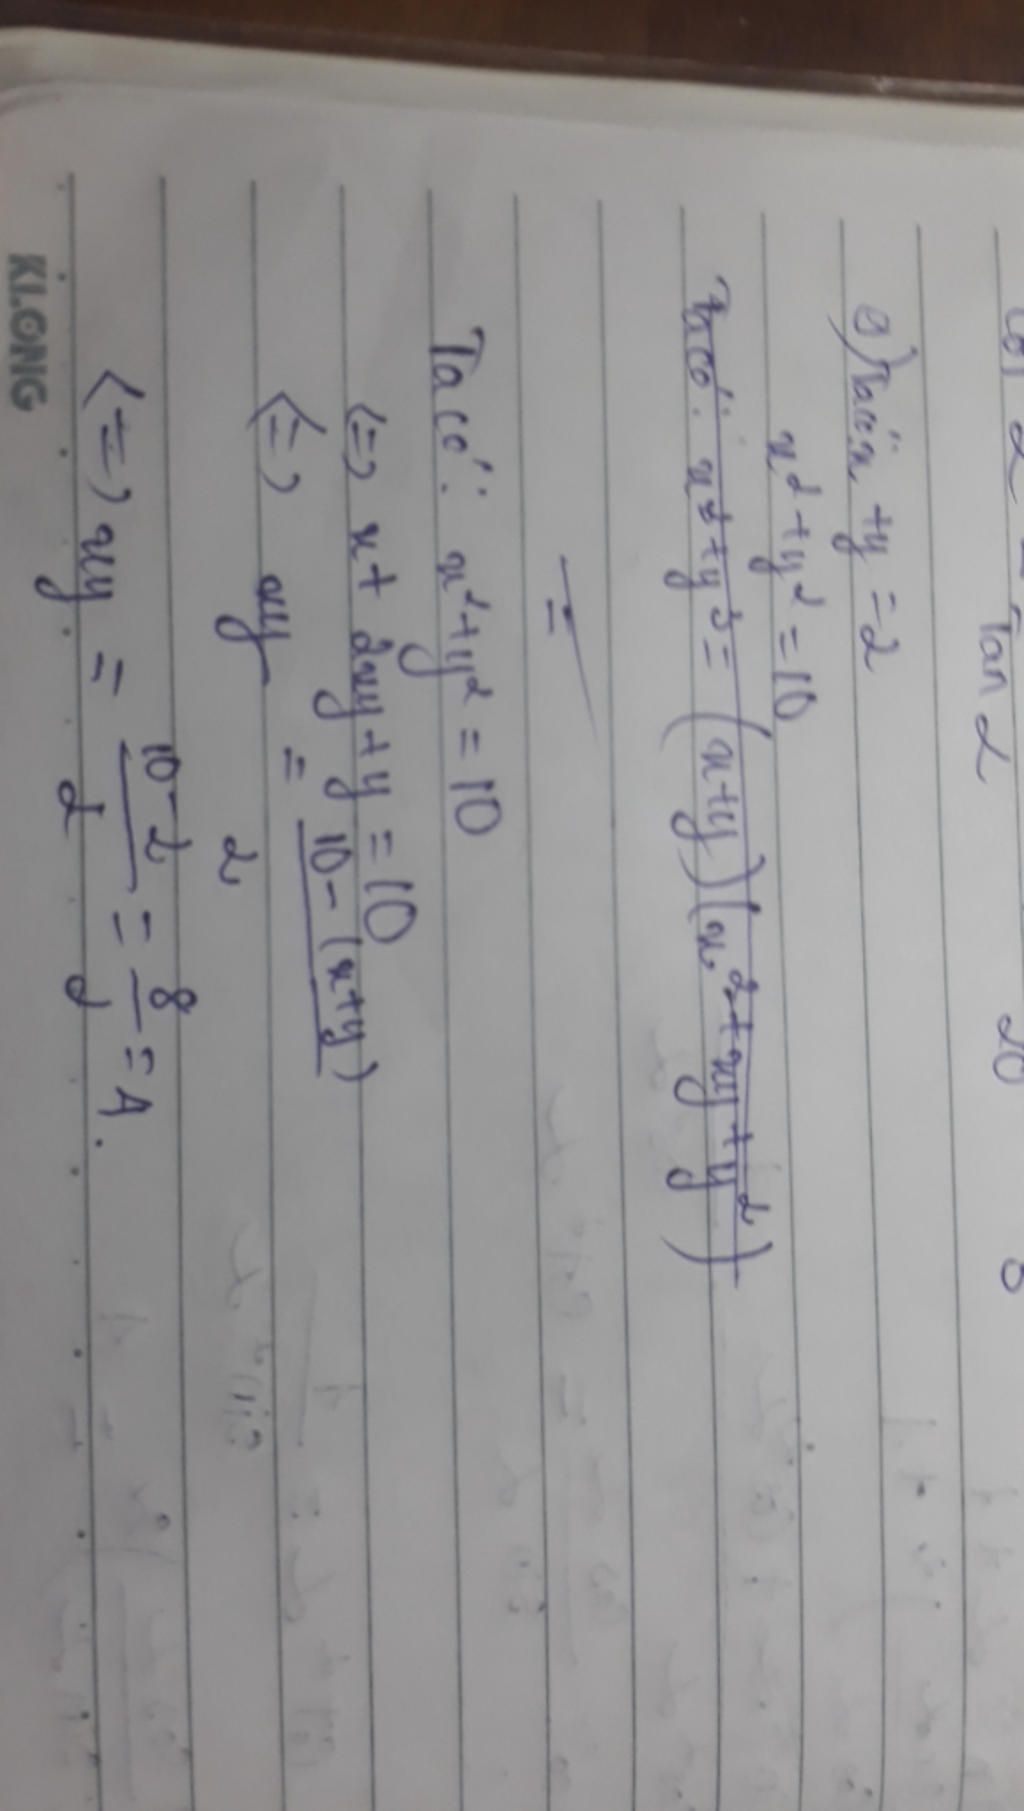 Tan α
g) Ta có: x + y = 2
x² + y² = 10
Ta có: x³ + y³ = (x+y)(x² + xy + y²)
=
Ta có: x² + y² = 10
<=> x + 2xy + y = 10
<=> xy = \frac{10-(x+y)}{2}
<=> xy = \frac{10-2}{2} = \frac{8}{2} = 4.
KLONG